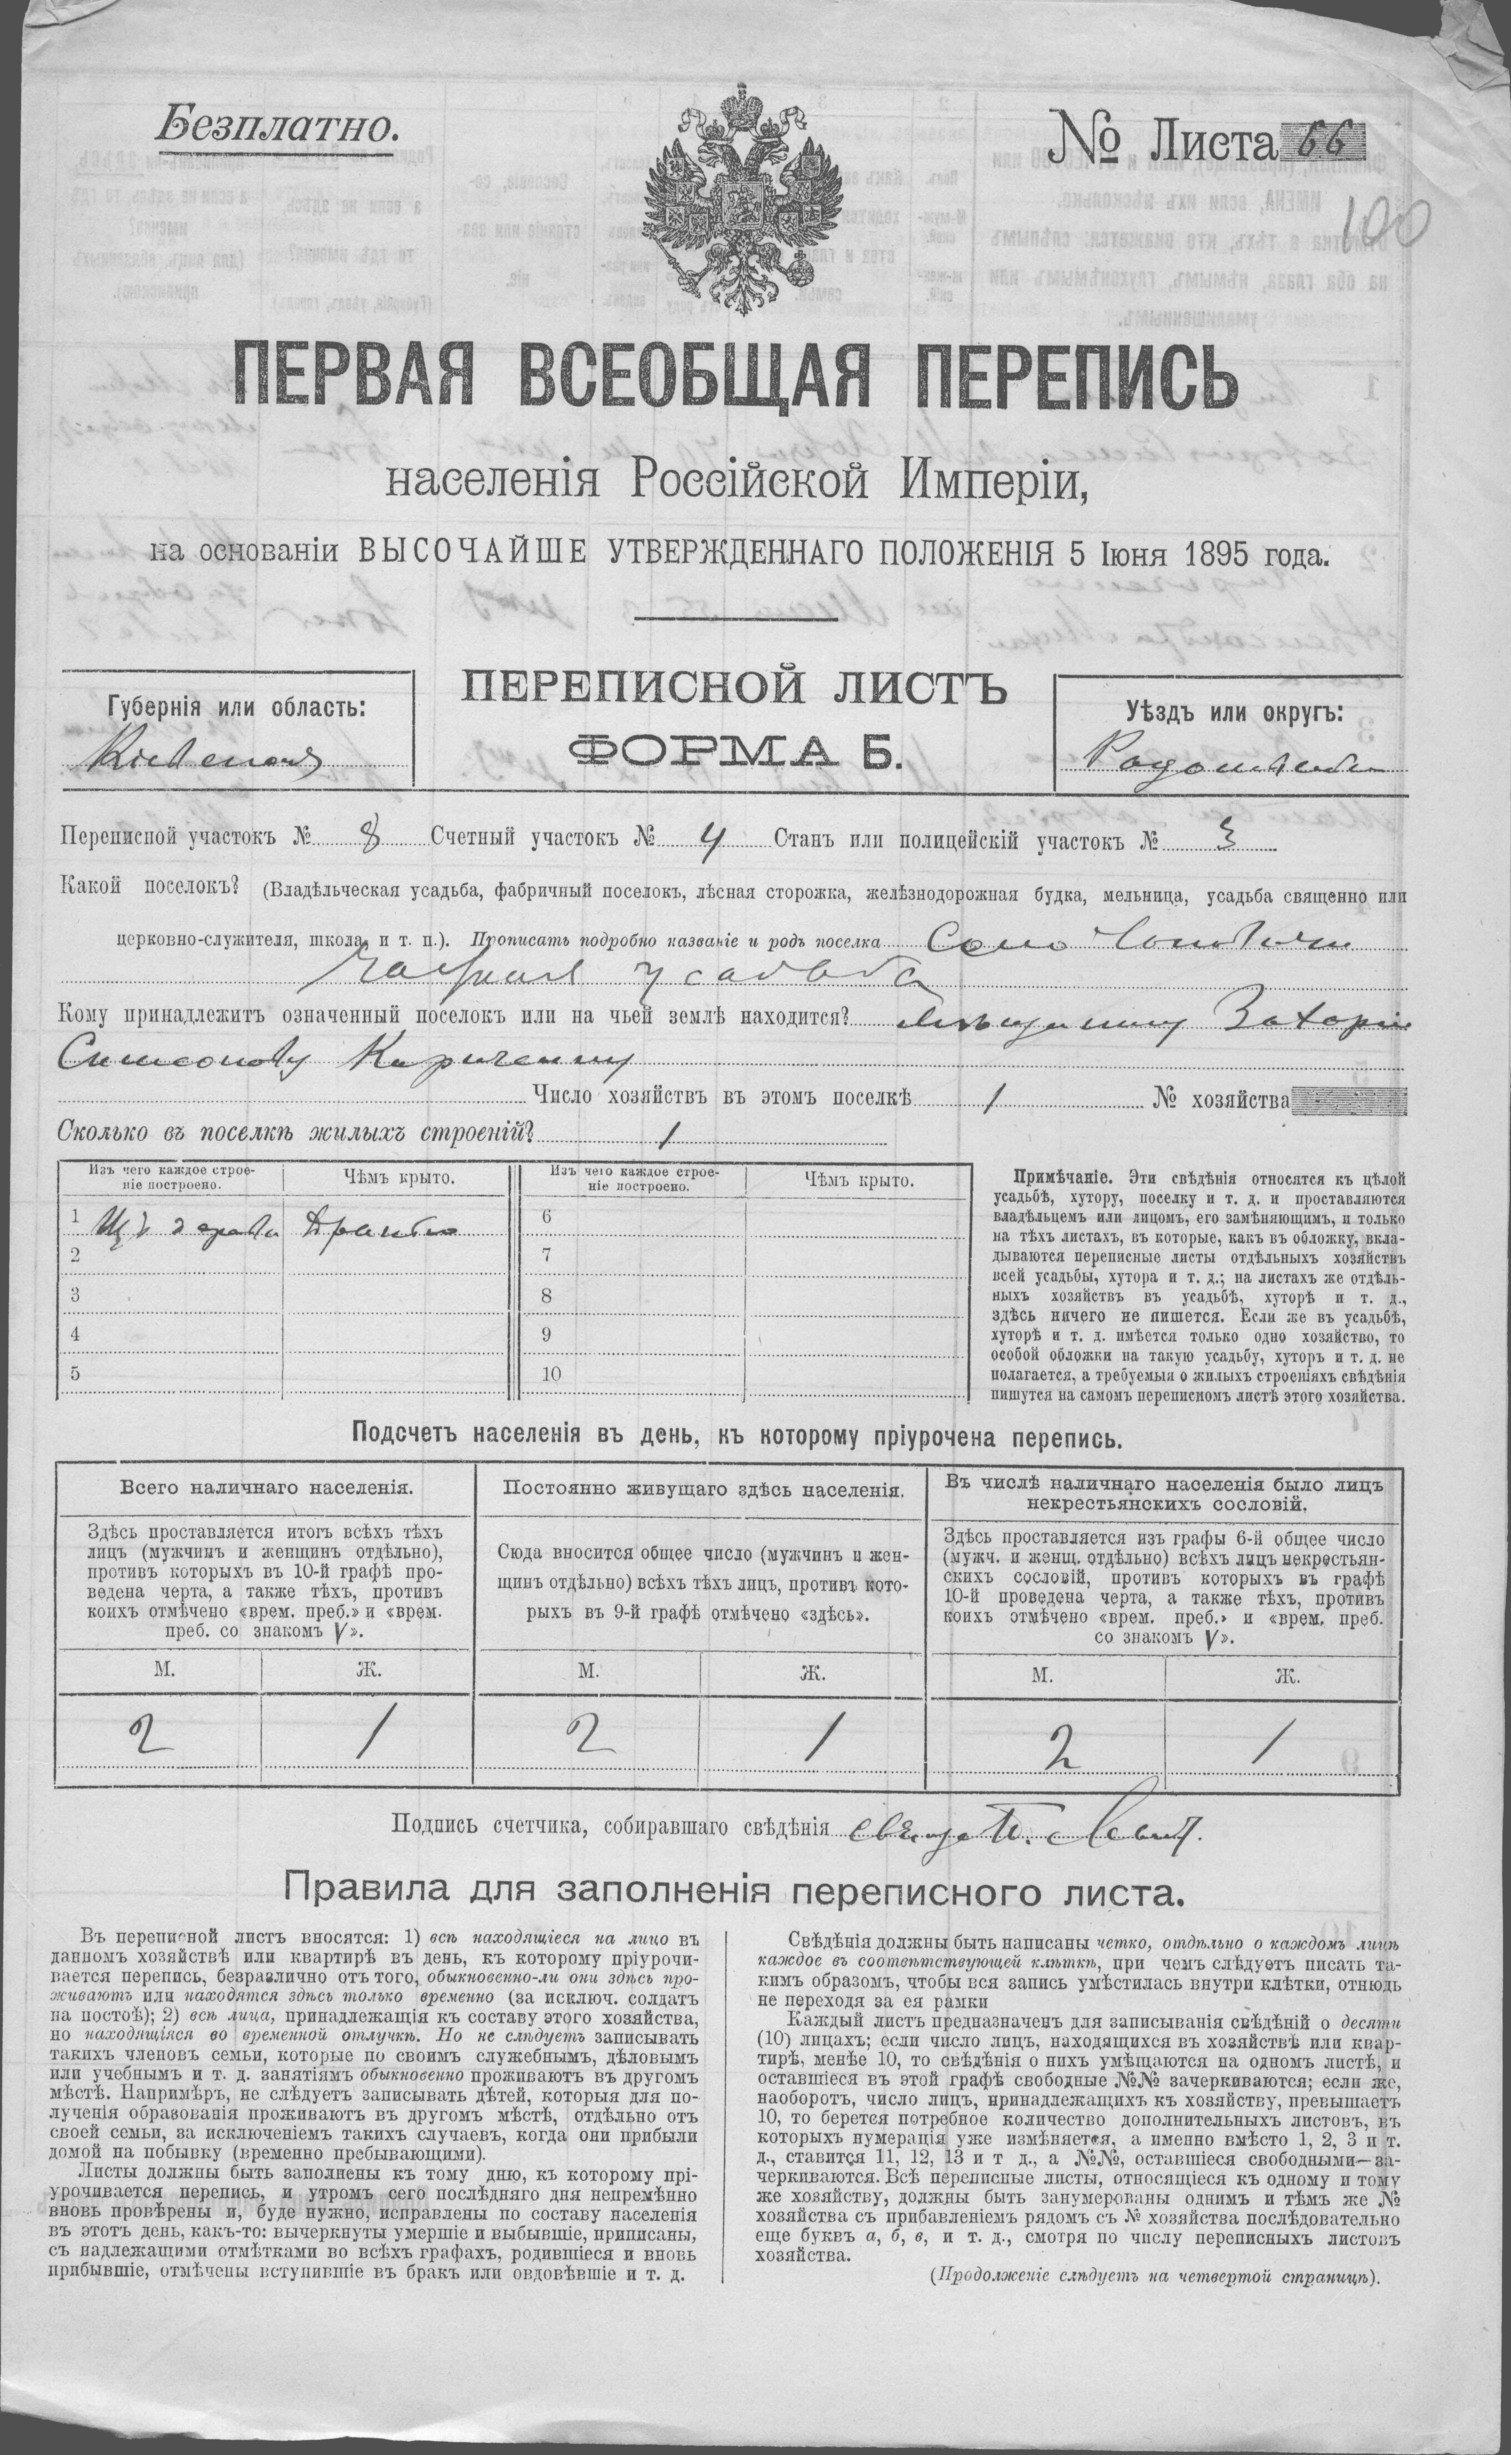 Безплатно.
№ Листа 66
100
ПЕРВАЯ ВСЕОБЩАЯ ПЕРЕПИСЬ
населенія Россійской Имперіи,
на основаніи ВЫСОЧАЙШЕ УТВЕРЖДЕННАГО ПОЛОЖЕНІЯ 5 Іюня 1895 года.
ПЕРЕПИСНОЙ ЛИСТЪ
ФОРМА Б.
Губернія или область:
Кіевская
Уѣздъ или округъ:
Радомысльскій
Переписной участокъ № 8 Счетный участокъ № 4 Станъ или полицейскій участокъ № 3
Какой поселокъ? (Владѣльческая усадьба, фабричный поселокъ, лѣсная сторожка, желѣзнодорожная будка, мельница, усадьба священно или
церковно-служителя, школа, и т. п.). Прописать подробно названіе и родъ поселка Село
усадьба
Кому принадлежитъ означенный поселокъ или на чьей землѣ находится? мѣщанину Захарію
Симонову Кириченку
Число хозяйствъ въ этомъ поселкѣ 1 № хозяйства
Сколько въ поселкѣ жилыхъ строеній? 1
Изъ чего каждое строе-
ніе построено.
Чѣмъ крыто.
Изъ чего каждое строе-
ніе построено.
Чѣмъ крыто.
1 Изъ дерева Дранью
2
3
4
5
6
7
8
9
10
Примѣчаніе. Эти свѣдѣнія относятся къ цѣлой
усадьбѣ, хутору, поселку и т. д. и проставляются
владѣльцемъ или лицомъ, его замѣняющимъ, и только
на тѣхъ листахъ, въ которые, какъ въ обложку, вкла-
дываются переписные листы отдѣльныхъ хозяйствъ
всей усадьбы, хутора и т. д.; на листахъ же отдѣль-
ныхъ хозяйствъ въ усадьбѣ, хуторѣ и т. д.,
здѣсь ничего не пишется. Если же въ усадьбѣ,
хуторѣ и т. д. имѣется только одно хозяйство, то
особой обложки на такую усадьбу, хуторъ и т. д. не
полагается, а требуемыя о жилыхъ строеніяхъ свѣдѣнія
пишутся на самомъ переписномъ листѣ этого хозяйства.
Подсчетъ населенія въ день, къ которому пріурочена перепись.
Всего наличнаго населенія.
Здѣсь проставляется итогъ всѣхъ тѣхъ
лицъ (мужчинъ и женщинъ отдѣльно),
противъ которыхъ въ 10-й графѣ про-
ведена черта, а также тѣхъ, противъ
коихъ отмѣчено «врем. преб.» и «врем.
преб. со знакомъ V».
М. Ж.
2 1
Постоянно живущаго здѣсь населенія.
Сюда вносится общее число (мужчинъ и жен-
щинъ отдѣльно) всѣхъ тѣхъ лицъ, противъ кото-
рыхъ въ 9-й графѣ отмѣчено «здѣсь».
М. Ж.
2 1
Въ числѣ наличнаго населенія было лицъ
некрестьянскихъ сословій.
Здѣсь проставляется изъ графы 6-й общее число
(мужч. и женщ. отдѣльно) всѣхъ лицъ некрестьян-
скихъ сословій, противъ которыхъ въ графѣ
10-й проведена черта, а также тѣхъ, противъ
коихъ отмѣчено «врем. преб.» и «врем. преб.
со знакомъ V».
М. Ж.
2 1
Подпись счетчика, собиравшаго свѣдѣнія
Правила для заполненія переписного листа.
Въ переписной листъ вносятся: 1) всѣ находящіеся на лицо въ
данномъ хозяйствѣ или квартирѣ въ день, къ которому пріурочи-
вается перепись, безразлично отъ того, обыкновенно-ли они здѣсь про-
живаютъ или находятся здѣсь только временно (за исключ. солдатъ
на постоѣ); 2) всѣ лица, принадлежащія къ составу этого хозяйства,
но находящіяся во временной отлучкѣ. Но не слѣдуетъ записывать
такихъ членовъ семьи, которые по своимъ служебнымъ, дѣловымъ
или учебнымъ и т. д. занятіямъ обыкновенно проживаютъ въ другомъ
мѣстѣ. Напримѣръ, не слѣдуетъ записывать дѣтей, которыя для по-
лученія образованія проживаютъ въ другомъ мѣстѣ, отдѣльно отъ
своей семьи, за исключеніемъ такихъ случаевъ, когда они прибыли
домой на побывку (временно пребывающими).
Листы должны быть заполнены къ тому дню, къ которому прі-
урочивается перепись, и утромъ сего послѣдняго дня непремѣнно
вновь провѣрены и, буде нужно, исправлены по составу населенія
въ этотъ день, какъ-то: вычеркнуты умершіе и выбывшіе, приписаны,
съ надлежащими отмѣтками во всѣхъ графахъ, родившіеся и вновь
прибывшіе, отмѣчены вступившіе въ бракъ или овдовѣвшіе и т. д.
Свѣдѣнія должны быть написаны четко, отдѣльно о каждомъ лицѣ
каждое въ соотвѣтствующей клѣткѣ, при чемъ слѣдуетъ писать та-
кимъ образомъ, чтобы вся запись умѣстилась внутри клѣтки, отнюдь
не переходя за ея рамки
Каждый листъ предназначенъ для записыванія свѣдѣній о десяти
(10) лицахъ; если число лицъ, находящихся въ хозяйствѣ или квар-
тирѣ, менѣе 10, то свѣдѣнія о нихъ умѣщаются на одномъ листѣ, и
оставшіеся въ этой графѣ свободные №№ зачеркиваются; если же,
наоборотъ, число лицъ, принадлежащихъ къ хозяйству, превышаетъ
10, то берется потребное количество дополнительныхъ листовъ, въ
которыхъ нумерація уже измѣняется, а именно вмѣсто 1, 2, 3 и т.
д., ставится 11, 12, 13 и т д., а №№, оставшіеся свободными—за-
черкиваются. Всѣ переписные листы, относящіеся къ одному и тому
же хозяйству, должны быть занумерованы однимъ и тѣмъ же №
хозяйства съ прибавленіемъ рядомъ съ № хозяйства послѣдовательно
еще буквъ а, б, в, и т. д., смотря по числу переписныхъ листовъ
хозяйства.
(Продолженіе слѣдуетъ на четвертой страницѣ).